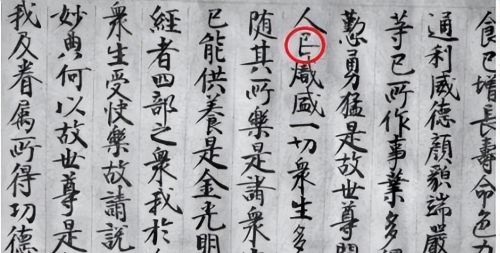 食已增長壽命色力
通利威德顏貌端嚴
等已所作事業多
懃勇猛是故世尊閻
人已熾盛一切衆生多
随其所樂是諸衆
已能供養是金光明
經者四部之衆我於
衆生受快樂故請說
妙典何以故世尊是
我及眷属所得功德